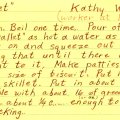 et" Kathy W
(worker at
n. Boil one time. Pour off
allet" as hot a water as
on and squeeze out
g that until there
t to it. Make patties
size of biscuit. Put i
skillet. Put in about
se with about ¼ of green
about ¼ c.... enough to
cking.